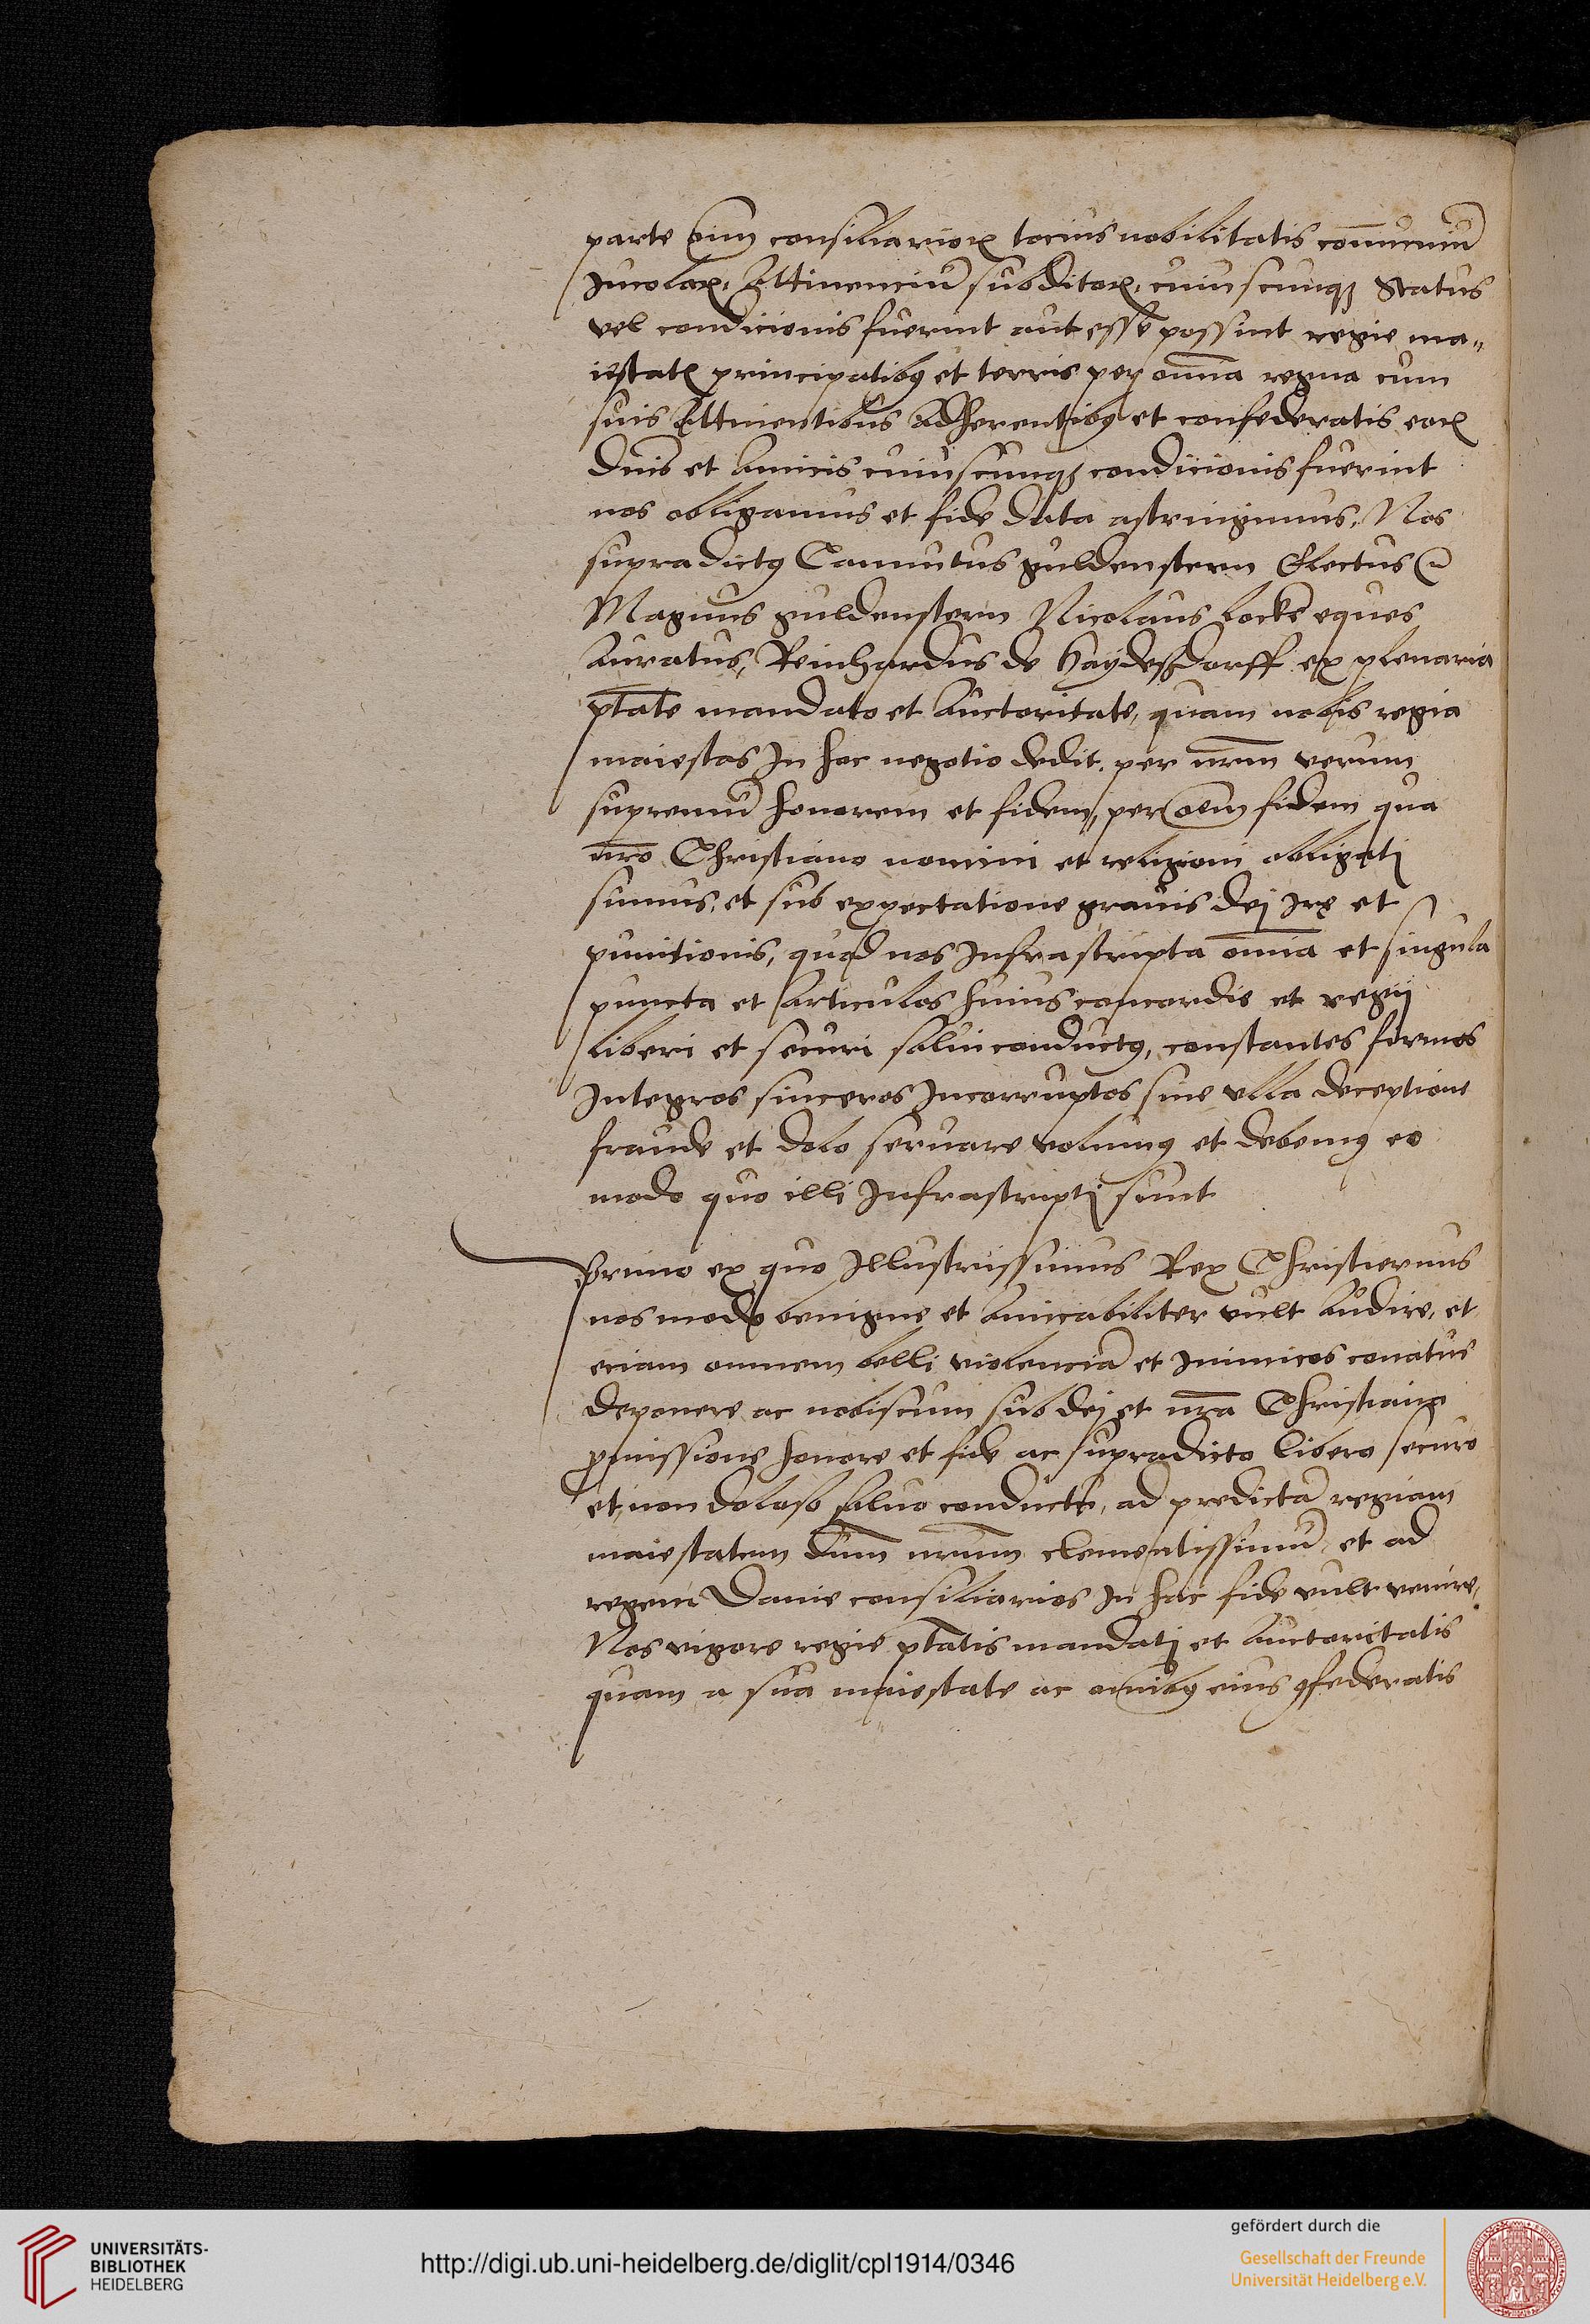 parte oim̄ consiliarioꝝ tocius nobilitatis com̄uniū
Incolaꝝ, Attinenciū subditoꝝ, cuiuscunqꝫ Status
vel condicionis fuerint aut esse possint regie ma„
iestatꝭ principatibꝰ et terris per om̄ia regna cum
suis Attinentibus Adherentibꝰ et confederatis eoꝝ
Dn̄is et Amicis cuiuscunqꝫ condicionis fuerint
nos obligamus et fide data astringimus, Nos
supradictꝰ Canutus guldenstern Electus
Magnus guldenstern Nicolaus locke eques
Auratus, Reinhardus de Haydeßdorff ex plenaria
ptāte mandato et Auctoritate, quam nobis regia
maiestas In hac negotio dedit, per nr̄m verum
supremū honorem et fidem, per oēm fidem qua
nr̄o Christiano nomini et religioni obligati
sumus, et sub expectatione grauis dej Irę et
punitionis, quod nos Infrascripta om̄ia et singula
puncta et Articulos huius concordie et regij
liberi et securi saluiconductꝰ, constantes firmos
Integros sinceros Incorruptos sine vlla deceptione
fraude et dolo seruare volumꝰ et debemꝰ eo
modo quo illi Infrascriptj sunt
Primo ex quo Illustrissimus Rex Christiernus
nos modo benigne et Amicabiliter vult Audire, et
eciam omnem belli violenciā et Inimicos conatus
deponere ac nobiscum sub dej et nr̄a Christiana
ꝑmissione honore et fide ac supradicto libero securo
et non doloso saluo conductu, ad predictā regiam
maiestatem dn̄m nr̄um clementissimū et ad
regem Danie consiliarios In hac fide vult venire,
Nos vigore regie ptātis mandatj et Auctoritatis
quam a sua maiestate ac om̄ibꝰ eius ꝯfederatis
UNIVERSITÄTS-
BIBLIOTHEK
HEIDELBERG
http://digi.ub.uni-heidelberg.de/diglit/cpl1914/0346
gefördert durch die
Gesellschaft der Freunde
Universität Heidelberg e.V.